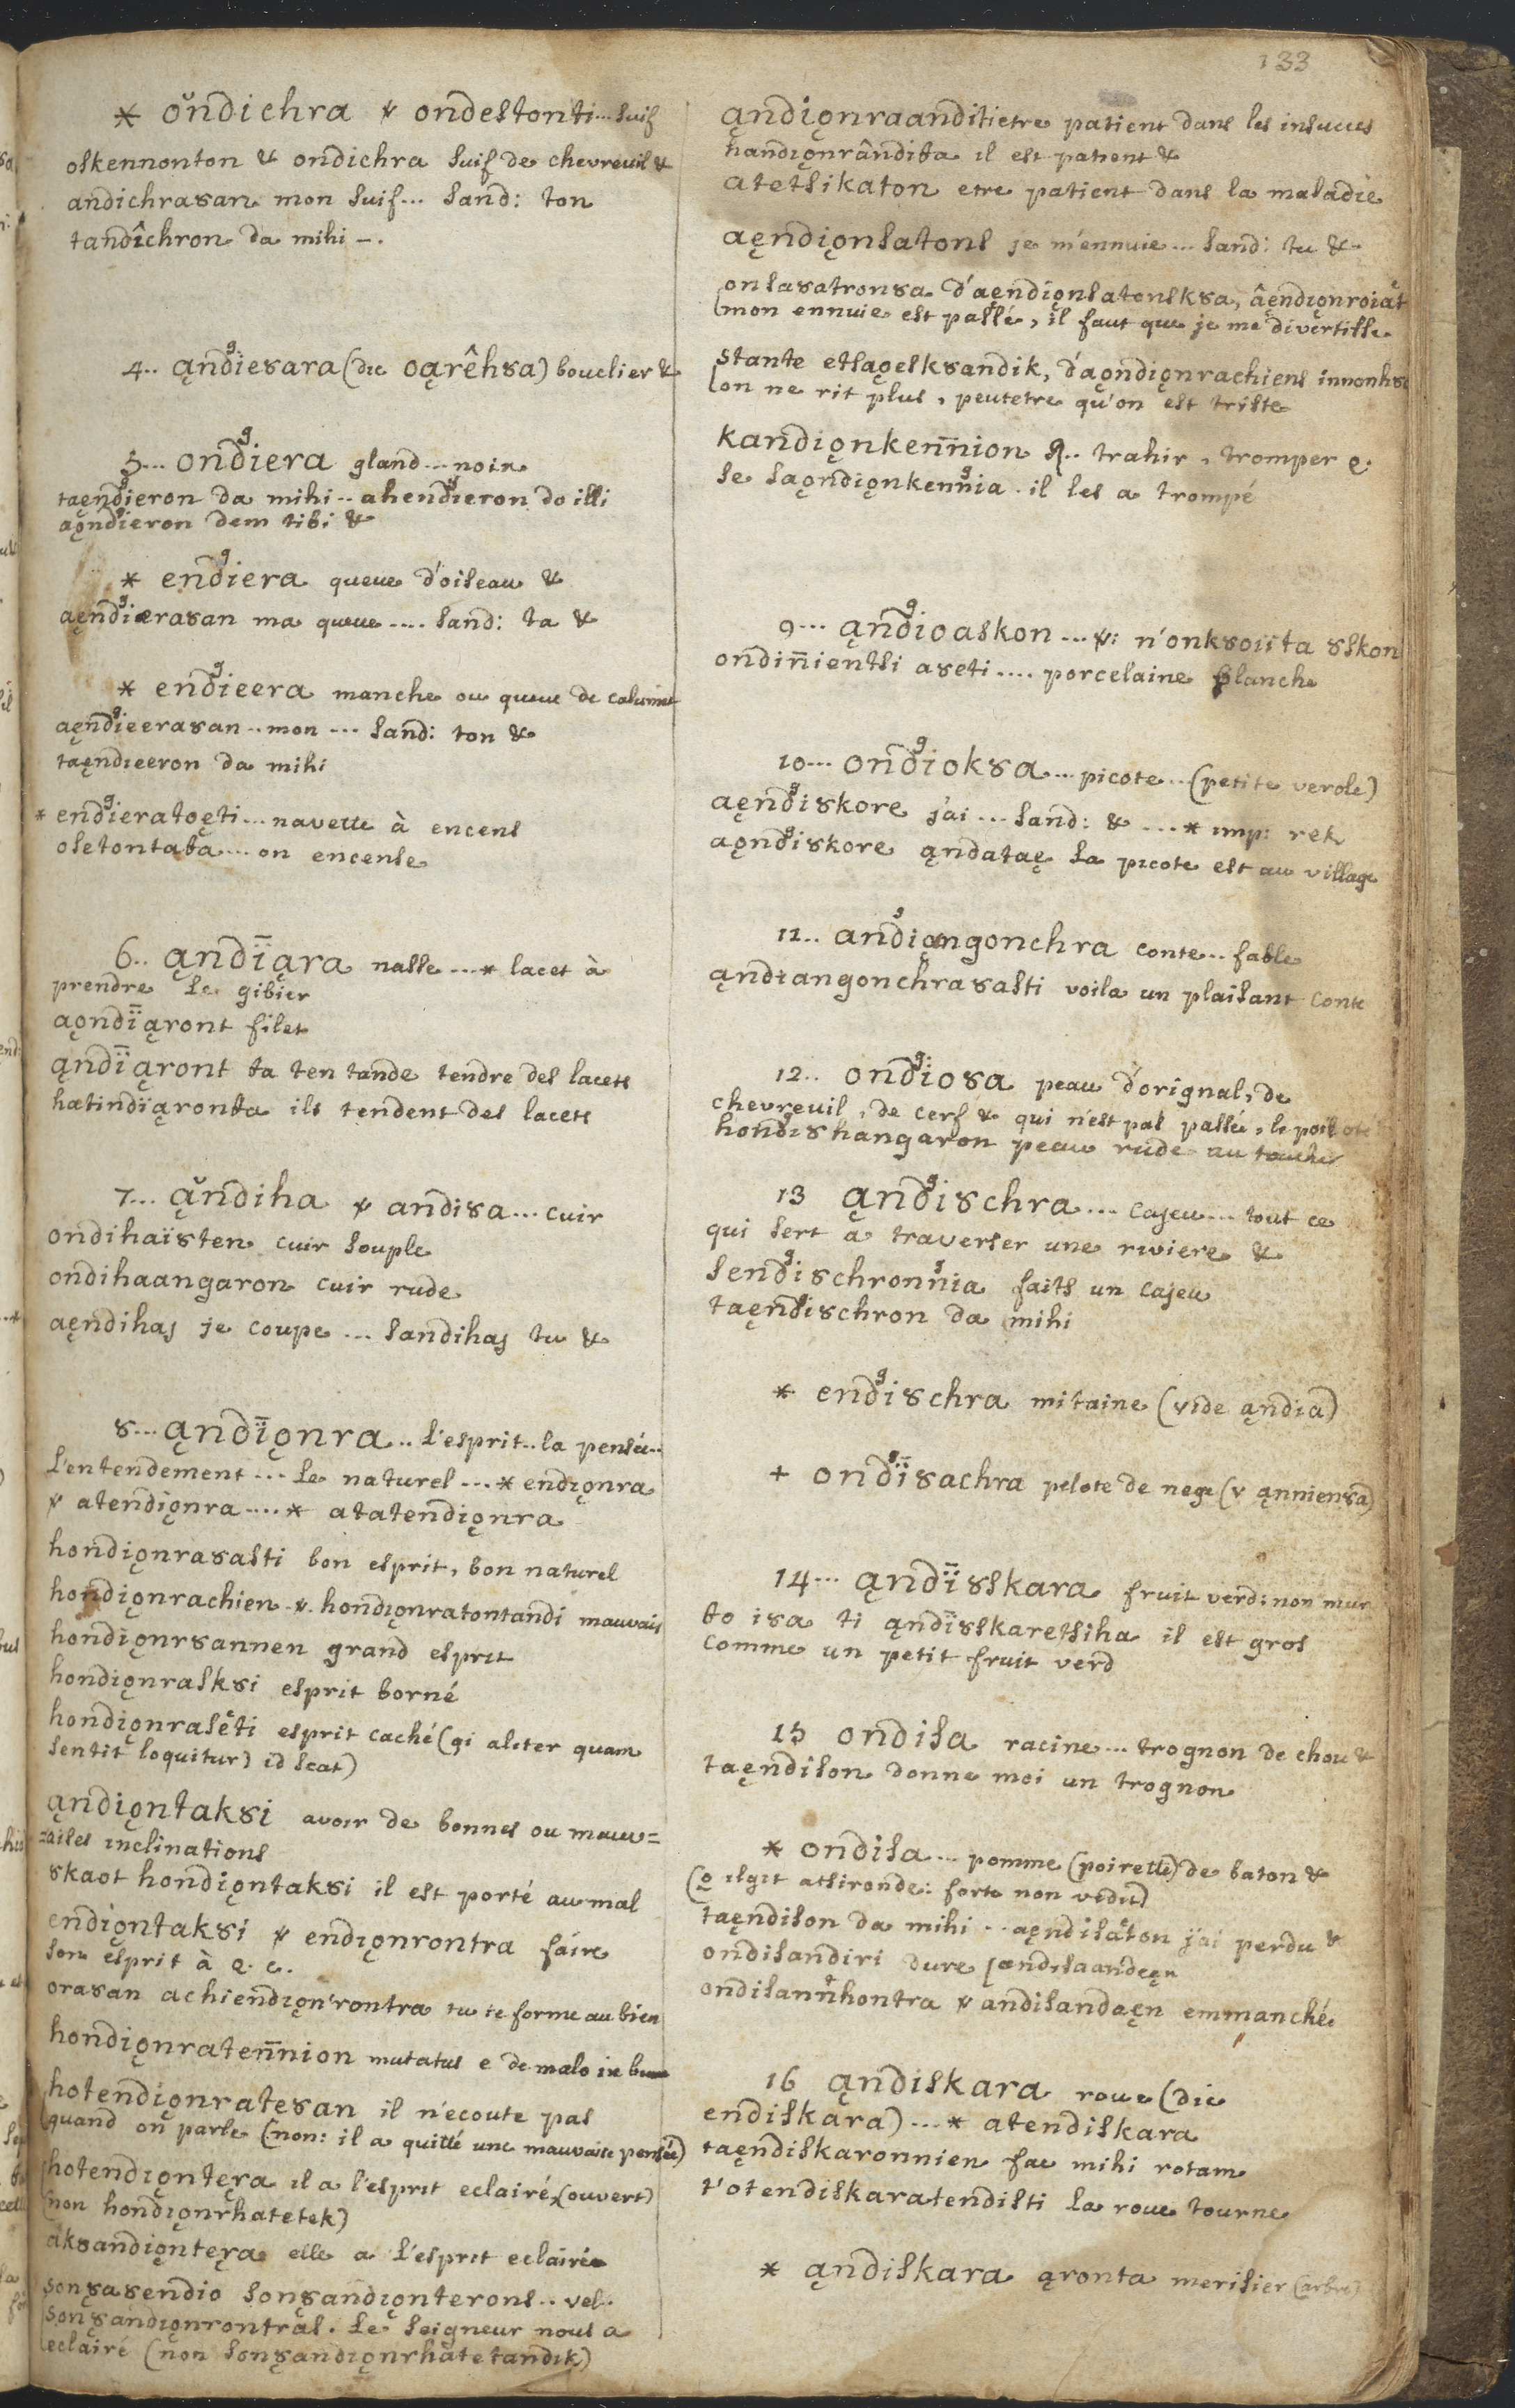 133
* ondichra v ondestonti... suif
oskennonton & ondichra suif de chevreuil &
andichrasan mon suif... sand: ton
tandîchron da mihi -.
4.. ąndiesara (dic oąrêhsa) bouclier &
5... ondiera gland... noix
taęndieron da mihi.. ahendieron do illi
aǫndieron dem tibi &
* endiera queue d'oiseau &
aęndierasan ma queue .... sand: ta &
* endieera manche ou queue de calumet
aęndieerasan.. mon ... sand: ton &
taęndieeron da mihi
* endieratoęti... navette à encens
osetontaθa.... on encense
6.. ąndïąra nasse ...* lacet à
prendre le gibier
aǫndïąront filet
ąndïąront ta ten tande tendre des lacets
hatindïąronθa ils tendent des lacets
7... ąndiha v andisa... cuir
ondihaïsten cuir souple
ondihaangaron cuir rude
aęndihaj je coupe ... sandihaj tu &
8... ąndïǫnra.. l'esprit.. la pensée..
l'entendement ... le naturel ...* endiǫnra
v atendiǫnra ....* atatendiǫnra
hondiǫnrasasti bon esprit, bon naturel
hondiǫnrachien v. hondiǫnratontandi mauvais
hondiǫnrsannen grand esprit
hondiǫnrasksi esprit borné
hondiǫnrasëti esprit caché (qi aliter quam
sentit loquitur) id scat)
ąndiǫntaksi avoir de bonnes ou mauv=
=aises inclinations
skaot hondiǫntaksi il est porté au mal
endiǫntaksi v endiǫnrontra faire
son esprit à q. c.
orasan achiendiǫn'rontra tu te forme au bien
hondiǫnratennion mutatus e de malo in bonum
hotendiǫnratesan il n'ecoute pas
quand on parle (non: il a quitté une mauvaise pensée)
hotendiǫntęra il a l'esprit eclairé (ouvert)
(non hondiǫnrhatetek)
aksandiǫntęra elle a l'esprit eclairée
songsasendio songsandiǫnterons.. vel.
songsandiǫnrontras. le seigneur nous a
eclairé (non songsandiǫnrhatetandik)
ąndiǫnraanditi etre patient dans les insucces
handiǫnrândiθa il est patient &
atetsikaton etre patient dans la maladie
aęndiǫnsatons je m'ennuie ... sand: tu &
onsasatronsa d'aęndiǫnsatonsksa, âęndiǫnroiąt
mon ennuie est passé, il faut que je me divertisse
stante etsagesksandik, d'aǫndiǫnrachiens innonhs
on ne rit plus, peutetre qu'on est triste
kandiǫnkennion q.. trahir, tromper q.
se saǫndiǫnkennia. il les a trompé
9... ąndioaskon ... v: n'onksoiïta skon
ondinientsi aseti .... porcelaine blanche
10... ondioksa... picote... (petite verole)
aęndiskore j'ai ... sand: & ...* imp: rek
aǫndiskore ąndataę la picote est au village
11.. andiąngonchra conte... fable
ąndiangonchrasasti voila un plaisant conte
12.. ondiosa peau d'orignal, de
chevreuil, de cerf & qui n'est pas passée, le poil oté
hondishangaron peau rude au toucher
13 ąndischra... cajeu... tout ce
qui sert à traverser une riviere &
sendischronnia faits un cajeu
taęndischron da mihi
* endischra mitaine (vide ąndia)
+ ondïsachra pelote de nege (v ąnniensa)
14... ąndïskara fruit verd: non mur
θo isa ti ąndïskaretsiha il est gros
comme un petit fruit verd
15 ondisa racine... trognon de chou &
taęndison donne moi un trognon
* ondisa... pomme (poirette) de baton &
taęndison da mihi.. aęndisaton j'ai perdu &
ondisandiri dure
ondisannhontra v andisandaęn emmanché
16 ąndiskara roue (dic
endiskara)...* atendiskara
taęndiskaronnien fac mihi rotam
t'otendiskaratendisti la roue tourne
* ąndiskara ąronta merisier (arbre)